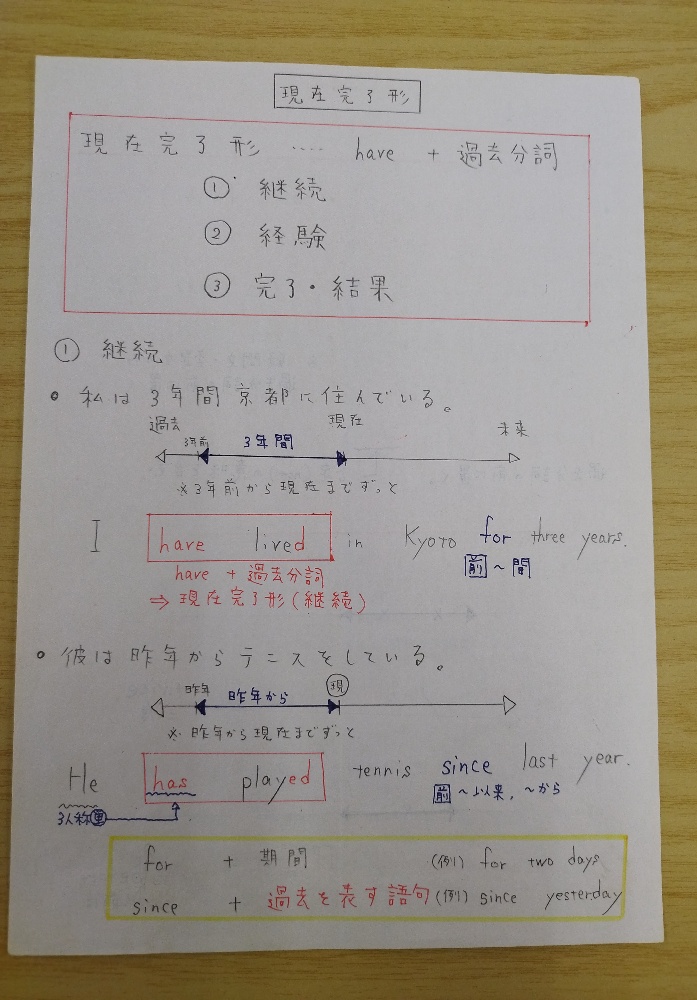 現在完了形
現在完了形 …… have + 過去分詞
① 継続
② 経験
③ 完了・結果
① 継続
。 私は3年間京都に住んでいる。
過去 現在 未来
3年前 3年間
※3年前から現在までずっと
I have lived in Kyoto for three years.
have + 過去分詞 前 ～間
⇒ 現在完了形(継続)
。 彼は昨年からテニスをしている。
昨年 昨年から 現
※昨年から現在までずっと
He has played tennis since last year.
3人称単 前 ～以来, ～から
for + 期間 (例) for two days
since + 過去を表す語句 (例) since yesterday